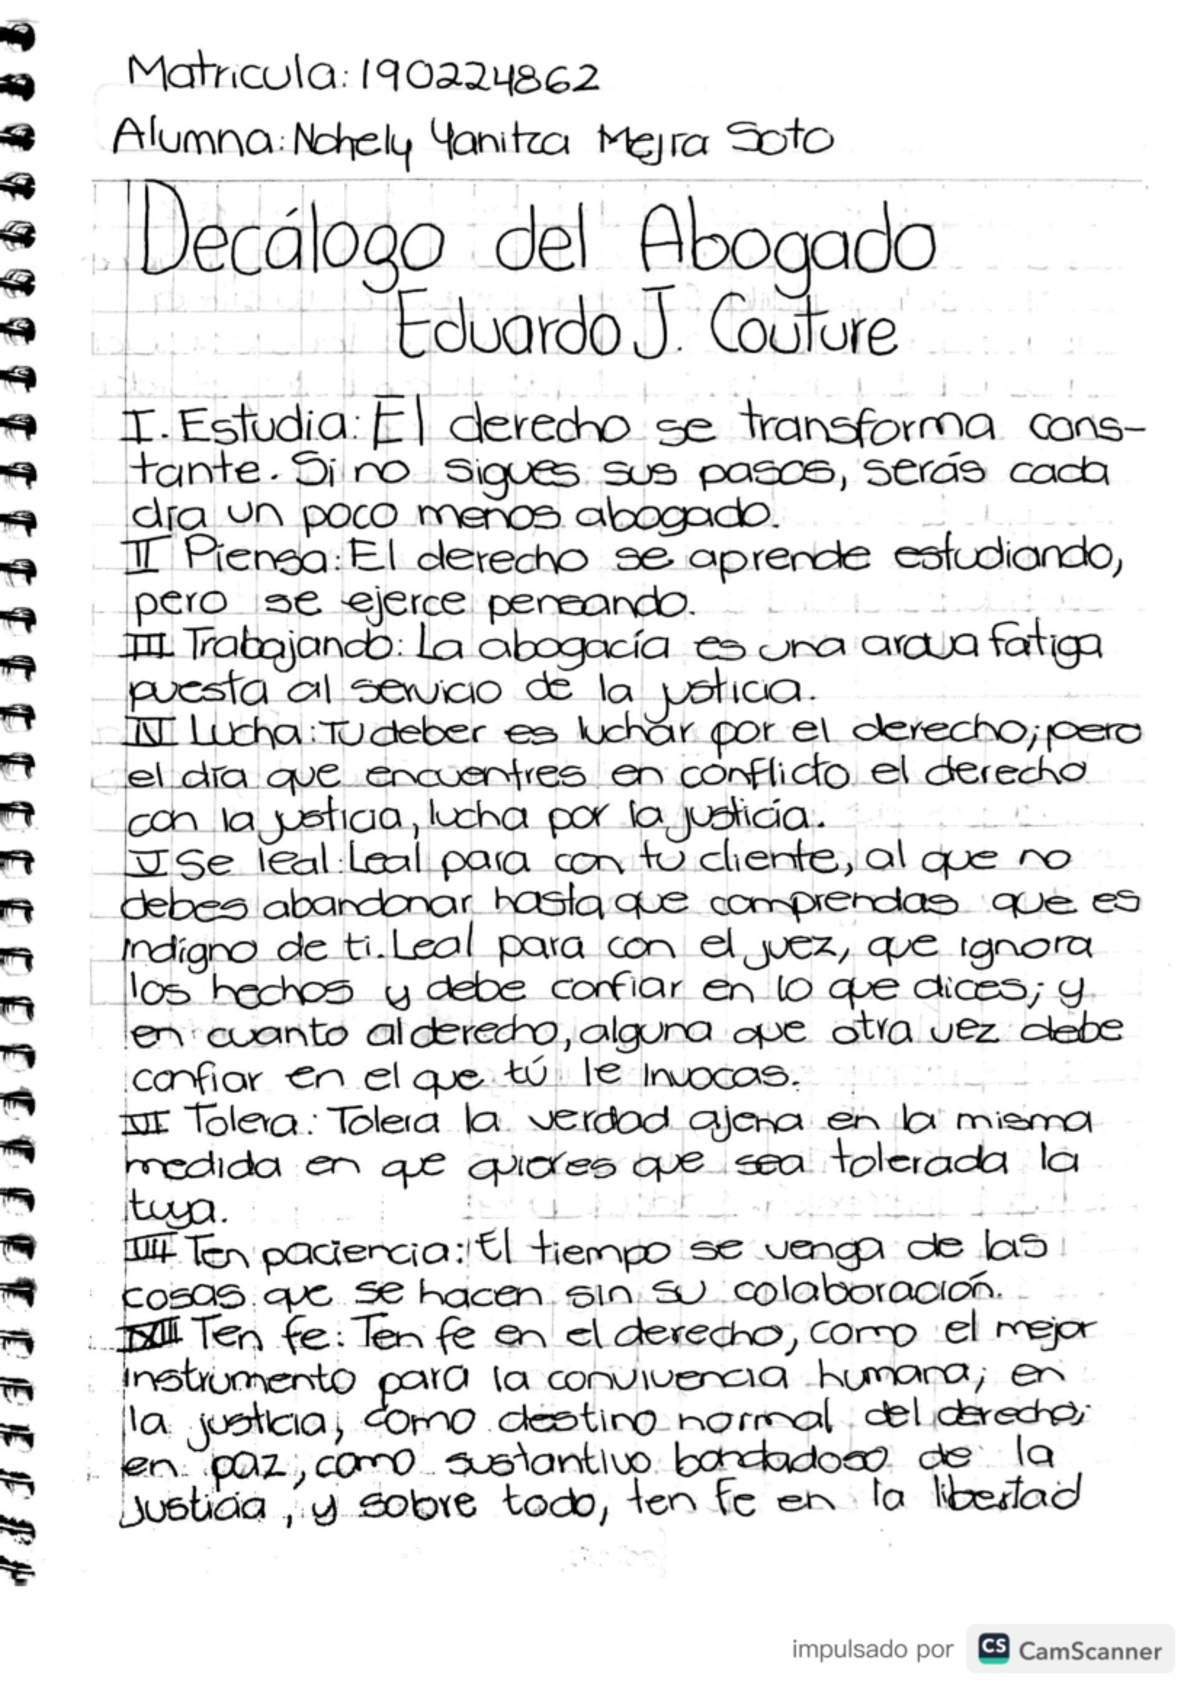 Matricula: 190224862
Alumna: Nohely Yanitza Mejia Soto
Decálogo del Abogado
Eduardo J. Couture
I. Estudia: El derecho se transforma cons-
tante. Si no sigues sus pasos, serás cada
día un poco menos abogado.
II Piensa: El derecho se aprende estudiando,
pero se ejerce pensando.
III Trabajando: La abogacía es una ardua fatiga
puesta al servicio de la justicia.
IV Lucha: Tu deber es luchar por el derecho; pero
el día que encuentres en conflicto el derecho
con la justicia, lucha por la justicia.
V Se leal: Leal para con tu cliente, al que no
debes abandonar hasta que comprendas que es
indigno de ti. Leal para con el juez, que ignora
los hechos y debe confiar en lo que dices; y
en cuanto al derecho, alguna que otra vez debe
confiar en el que tú le invocas.
VI Tolera: Tolera la verdad ajena en la misma
medida en que quieres que sea tolerada la
tuya.
VII Ten paciencia: El tiempo se venga de las
cosas que se hacen sin su colaboración.
VIII Ten fe: Ten fe en el derecho, como el mejor
instrumento para la convivencia humana; en
la justicia, como destino normal del derecho;
en paz, como sustantivo bondadoso de la
justicia, y sobre todo, ten fe en la libertad
impulsado por CS CamScanner